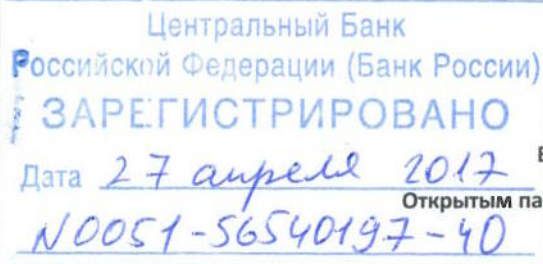 Центральный Банк
Российской Федерации (Банк России)
ЗАРЕГИСТРИРОВАНО
Дата 27 апреля 2017
Открытым па
N0051-56540197-40